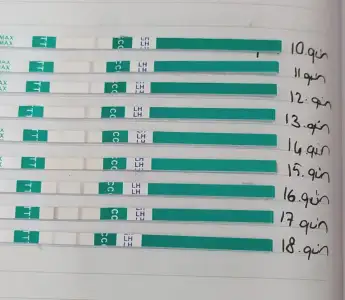 MAX MAX TT CC LH LH 10.gün
MAX TT CC LH LH 11.gün
TT CC LH LH 12.gün
TT CC LH LH 13.gün
TT CC LH LH 14.gün
TT CC LH LH 15.gün
TT CC LH LH 16.gün
TT CC LH LH 17.gün
TT CC LH LH 18.gün